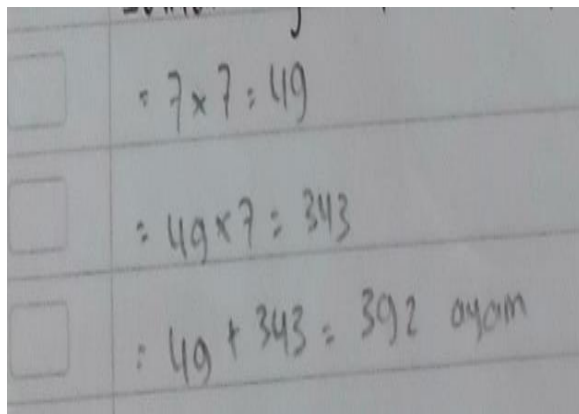 = 7 x 7 = 49
= 49 x 7 = 343
= 49 + 343 = 392 ayam